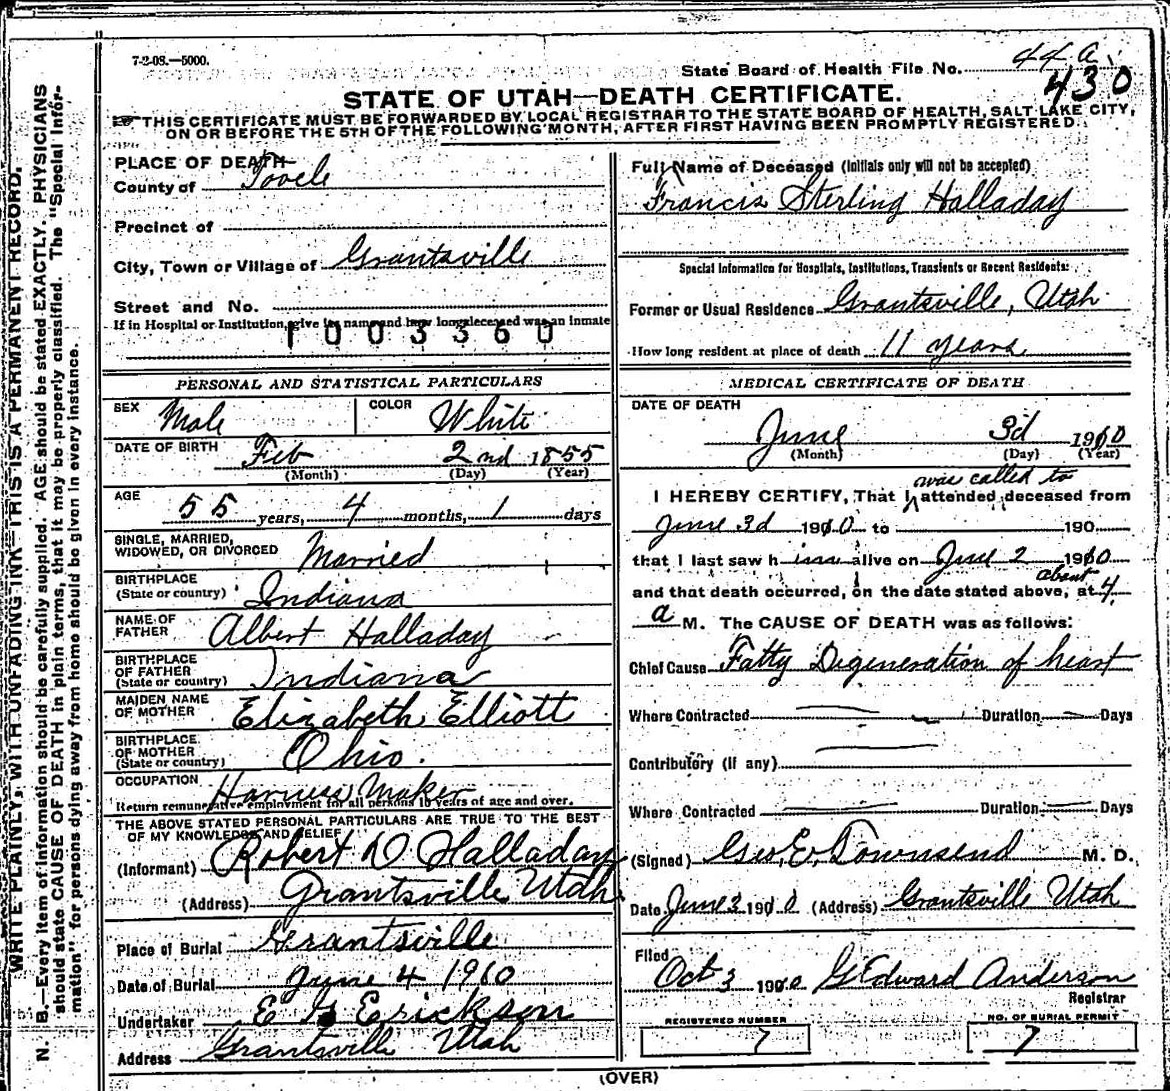 7-2-08.—5000.
State Board of Health File No. 44 a
430
STATE OF UTAH—DEATH CERTIFICATE.
THIS CERTIFICATE MUST BE FORWARDED BY LOCAL REGISTRAR TO THE STATE BOARD OF HEALTH, SALT LAKE CITY,
ON OR BEFORE THE 5TH OF THE FOLLOWING MONTH, AFTER FIRST HAVING BEEN PROMPTLY REGISTERED.
WRITE PLAINLY, WITH UNFADING INK—THIS IS A PERMANENT RECORD.
N. B.—Every item of information should be carefully supplied. AGE should be stated EXACTLY. PHYSICIANS
should state CAUSE OF DEATH in plain terms, that it may be properly classified. The "Special Infor-
mation" for persons dying away from home should be given in every instance.
PLACE OF DEATH
County of Tooele
Precinct of
City, Town or Village of Grantsville
Street and No.
If in Hospital or Institution, give its name and how long deceased was an inmate
1003360
PERSONAL AND STATISTICAL PARTICULARS
SEX Male COLOR White
DATE OF BIRTH Feb 2nd 1855
(Month) (Day) (Year)
AGE 55 years, 4 months, 1 days
SINGLE, MARRIED,
WIDOWED, OR DIVORCED Married
BIRTHPLACE
(State or country) Indiana
NAME OF
FATHER Albert Halladay
BIRTHPLACE
OF FATHER
(State or country) Indiana
MAIDEN NAME
OF MOTHER Elizabeth Elliott
BIRTHPLACE
OF MOTHER
(State or country) Ohio.
OCCUPATION Harness Maker
Return remunerative employment for all persons 10 years of age and over.
THE ABOVE STATED PERSONAL PARTICULARS ARE TRUE TO THE BEST
OF MY KNOWLEDGE AND BELIEF
(Informant) Robert D Halladay
(Address) Grantsville Utah.
Place of Burial Grantsville
Date of Burial June 4 1910
Undertaker E G Erickson
Address Grantsville Utah
Full Name of Deceased (Initials only will not be accepted)
Francis Sterling Halladay
Special Information for Hospitals, Institutions, Transients or Recent Residents:
Former or Usual Residence Grantsville, Utah.
How long resident at place of death 11 years
MEDICAL CERTIFICATE OF DEATH
DATE OF DEATH
June 3d 1910
(Month) (Day) (Year)
was called to
I HEREBY CERTIFY, That I attended deceased from
June 3d 1910 to 190
that I last saw h im alive on June 2 1910
about
and that death occurred, on the date stated above, at 4
a M. The CAUSE OF DEATH was as follows:
Chief Cause Fatty Degeneration of heart
Where Contracted Duration Days
Contributory (if any)
Where Contracted Duration Days
(Signed) Geo. E. Townsend M. D.
Date June 3 1910 (Address) Grantsville Utah
Filed
Oct 3 1910 G Edward Anderson
Registrar
REGISTERED NUMBER NO. OF BURIAL PERMIT
7 7
(OVER)